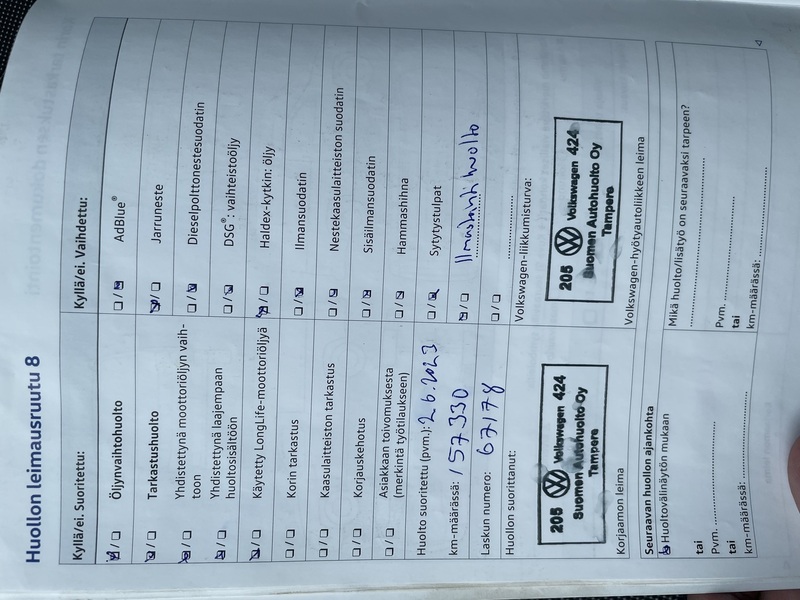 Huollon leimausruutu 8
Kyllä/ei. Suoritettu:
☒/☐ Öljynvaihtohuolto
☒/☐ Tarkastushuolto
☒/☐ Yhdistettynä moottoriöljyn vaih-
toon
☒/☐ Yhdistettynä laajempaan
huoltosisältöön
☒/☐ Käytetty LongLife-moottoriöljyä
☐/☐ Korin tarkastus
☐/☐ Kaasulaitteiston tarkastus
☐/☐ Korjauskehotus
☐/☐ Asiakkaan toivomuksesta
(merkintä työtilaukseen)
Huolto suoritettu (pvm.): 2.6.2023
km-määrässä: 157330
Laskun numero: 67178
Huollon suorittanut:
205 Volkswagen 424
Suomen Autohuolto Oy
Tampere
Korjaamon leima
Kyllä/ei. Vaihdettu:
☐/☒ AdBlue®
☒/☐ Jarruneste
☐/☒ Dieselpolttonestesuodatin
☐/☒ DSG®: vaihteistoöljy
☒/☐ Haldex-kytkin: öljy
☐/☒ Ilmansuodatin
☐/☒ Nestekaasulaitteiston suodatin
☐/☒ Sisäilmansuodatin
☐/☒ Hammashihna
☐/☒ Sytytystulpat
☒/☐ Ilmastointihuolto
☐/☐
Volkswagen-liikkumisturva:
205 Volkswagen 424
Suomen Autohuolto Oy
Tampere
Volkswagen-hyötyautoliikkeen leima
Seuraavan huollon ajankohta
☒ Huoltovälinäytön mukaan
tai
Pvm.
tai
km-määrässä:
Mikä huolto/lisätyö on seuraavaksi tarpeen?
Pvm.
tai
km-määrässä: